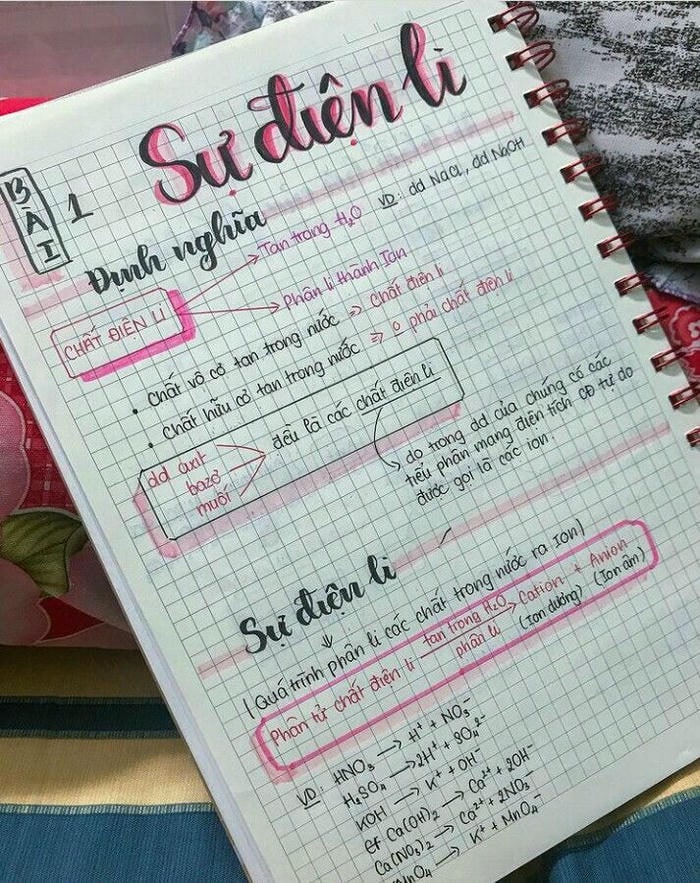 BÀI 1
Sự điện li
Định nghĩa
VD: dd NaCl, dd NaOH
CHẤT ĐIỆN LI
Tan trong H₂O
Phân li thành Ion
• Chất vô cơ tan trong nước => Chất điện li
• Chất hữu cơ tan trong nước => o phải chất điện li
dd axit
bazơ
muối
đều là các chất điện li
do trong dd của chúng có các
tiểu phân mang điện tích CĐ tự do
được gọi là các ion.
Sự điện li
(Quá trình phân li các chất trong nước ra Ion)
Phân tử chất điện li tan trong H₂O phân li → Cation + Anion
(Ion dương) (Ion âm)
VD: HNO₃ → H⁺ + NO₃⁻
H₂SO₄ → 2H⁺ + SO₄²⁻
KOH → K⁺ + OH⁻
Ca(OH)₂ → Ca²⁺ + 2OH⁻
Ca(NO₃)₂ → Ca²⁺ + 2NO₃⁻
MnO₄ → K⁺ + MnO₄⁻